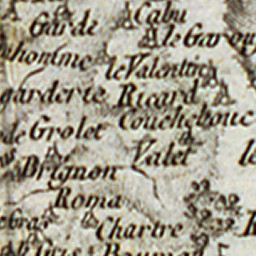 Cabu
Garde
le Garou
le Valentin
garderie Ricard
Couchebouc
de Grolet
Valet
Brignon
Roma
Chartre